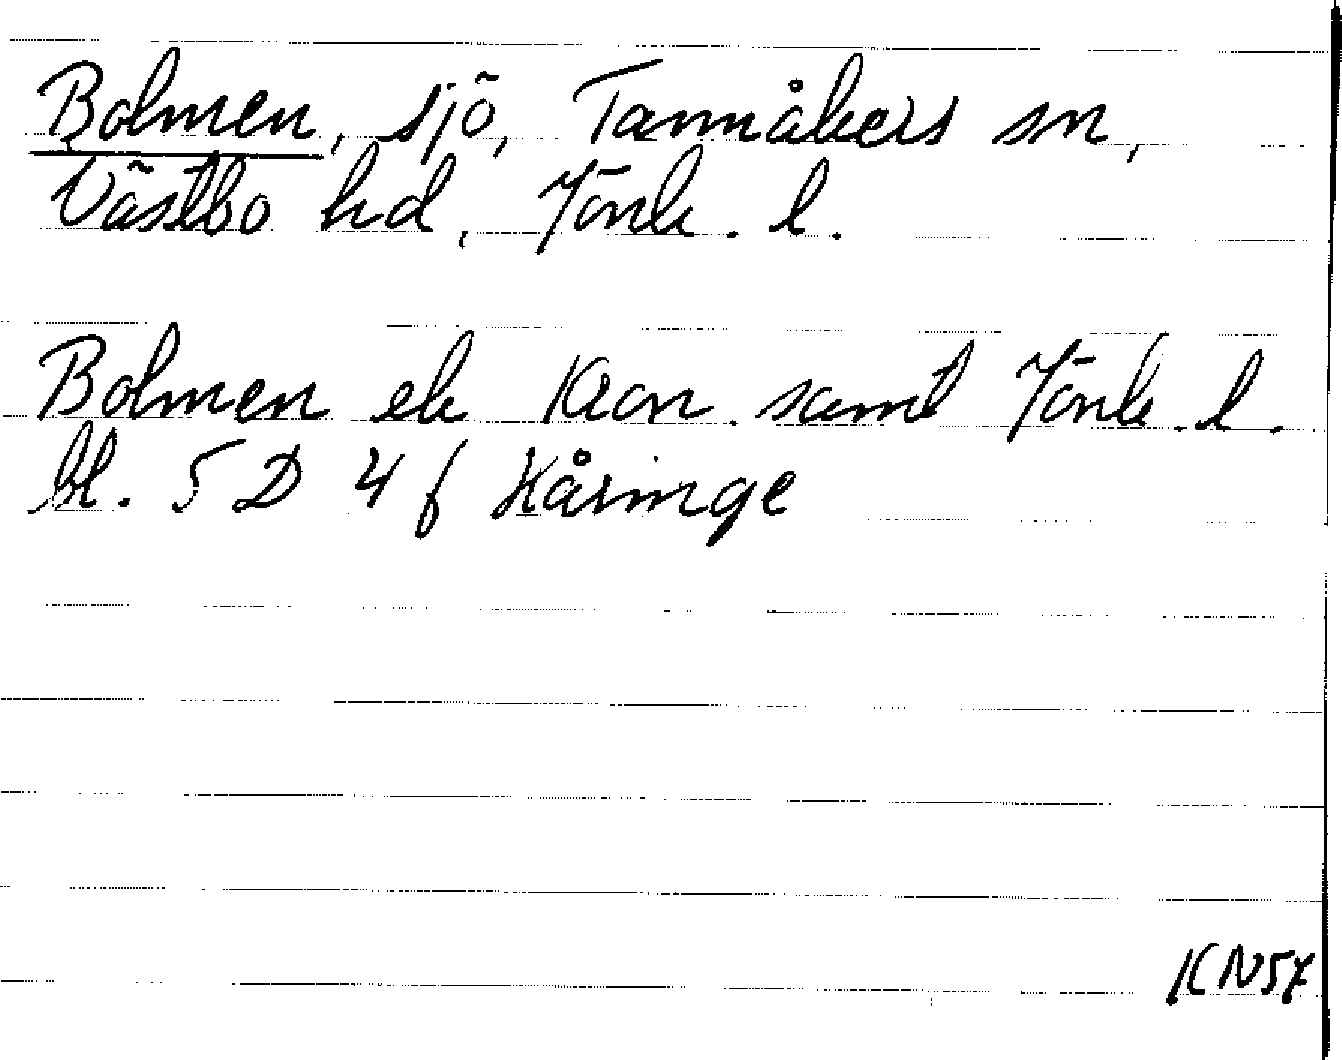 Bolmen, sjö, Tannåkers sn,
Västbo hd, Jönk. l.
Bolmen ek Kron. samt Jönk. l.
bl. 5 D 4 f Håringe
KN57